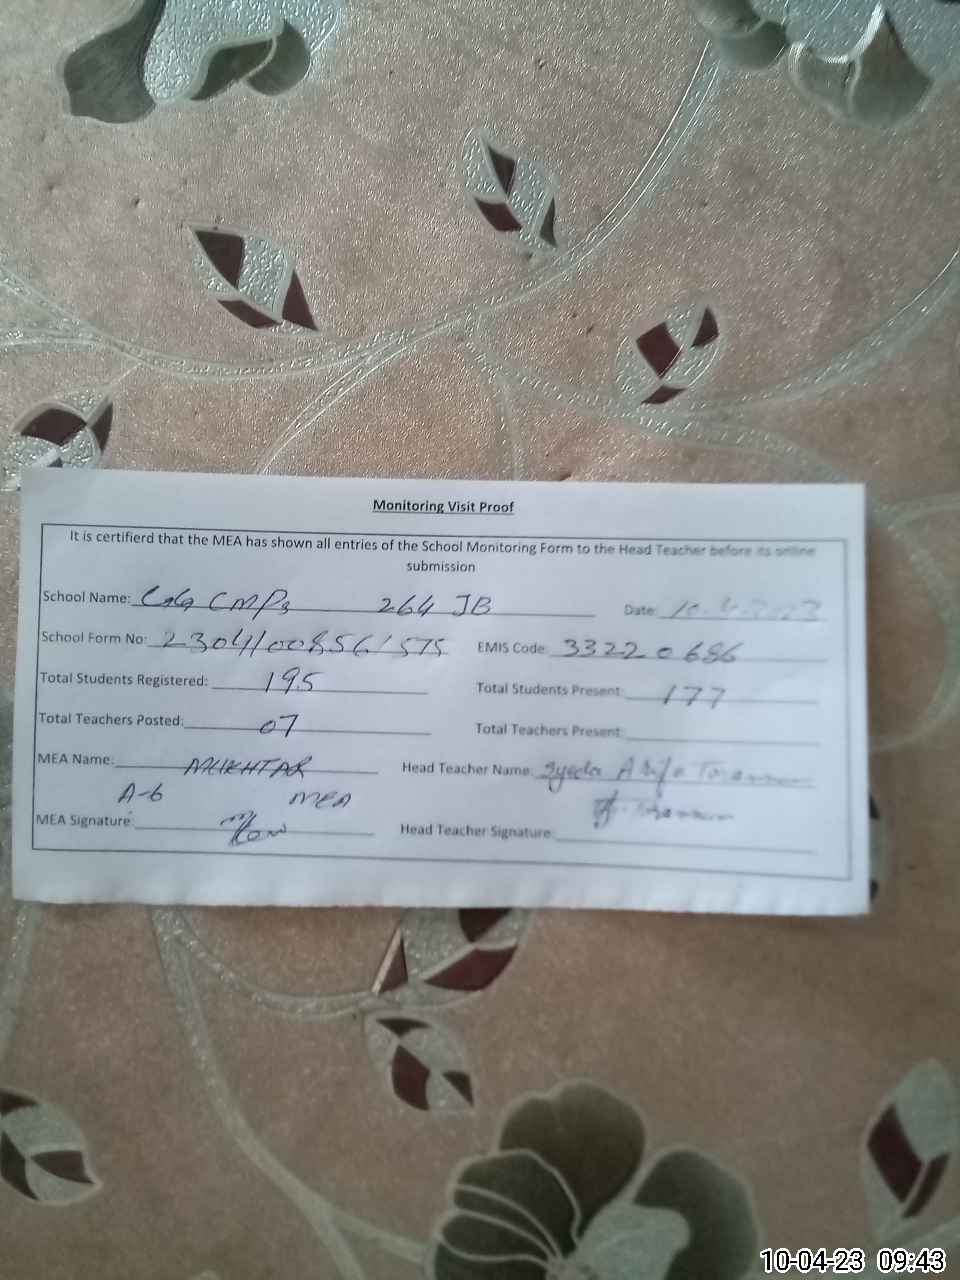 Monitoring Visit Proof
It is certifierd that the MEA has shown all entries of the School Monitoring Form to the Head Teacher before its online
submission
School Name: GG CMPS 264 JB Date: 10.4.2023
School Form No: EMIS Code: 33220686
Total Students Registered: 195 Total Students Present: 177
Total Teachers Posted: 07 Total Teachers Present:
MEA Name: MUKHTAR Head Teacher Name: Syeda
A-6 MEA
MEA Signature: Head Teacher Signature:
10-04-23 09:43